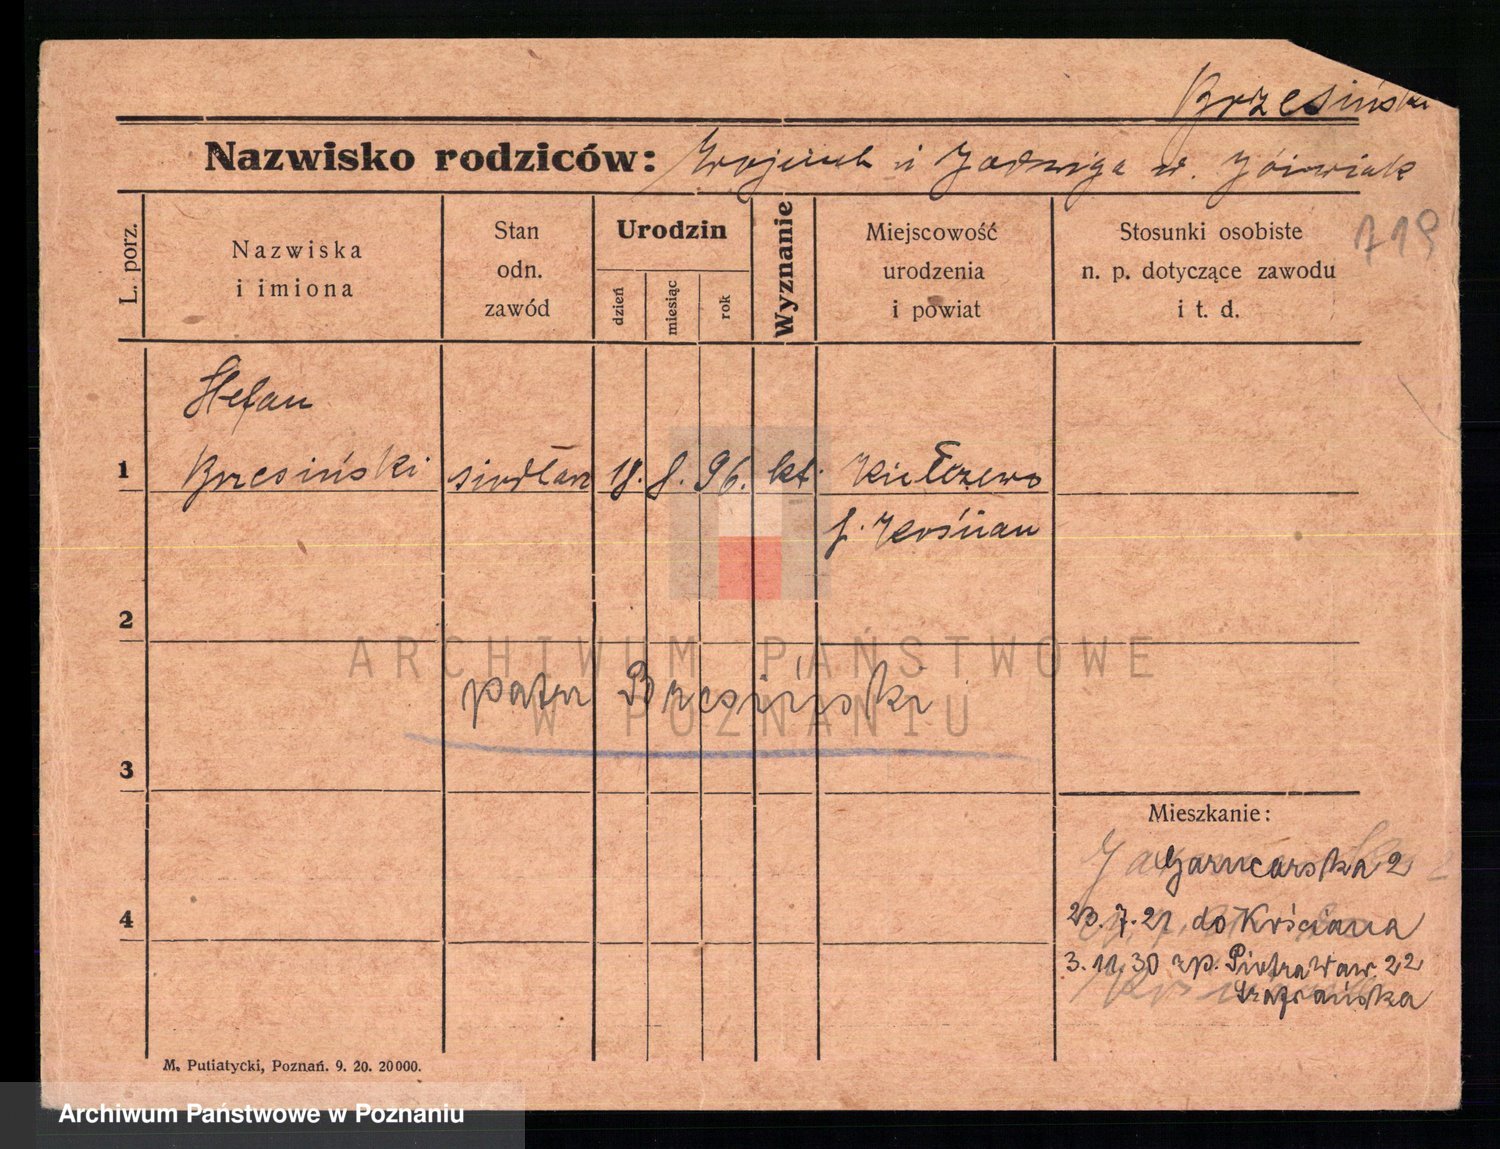 Brzesiński
Nazwisko rodziców: Wojciech i Jadwiga u. Jóźwiak
719
L. porz.
Nazwiska
i imiona
Stan
odn.
zawód
Urodzin
dzień
miesiąc
rok
Wyznanie
Miejscowość
urodzenia
i powiat
Stosunki osobiste
n. p. dotyczące zawodu
i t. d.
Stefan
1 Brzesiński siodlarz 18. 8. 96. kt. Kiełczewo
p. Kościan
2
ARCHIWUM PAŃSTWOWE
W POZNANIU
patrz Brzesiński
3
Mieszkanie:
Garncarska 2
23. 7. 21 do Kościana
4
3. 11. 30 zp. Piotra Waw. 22
M. Putiatycki, Poznań. 9. 20. 20000.
Archiwum Państwowe w Poznaniu